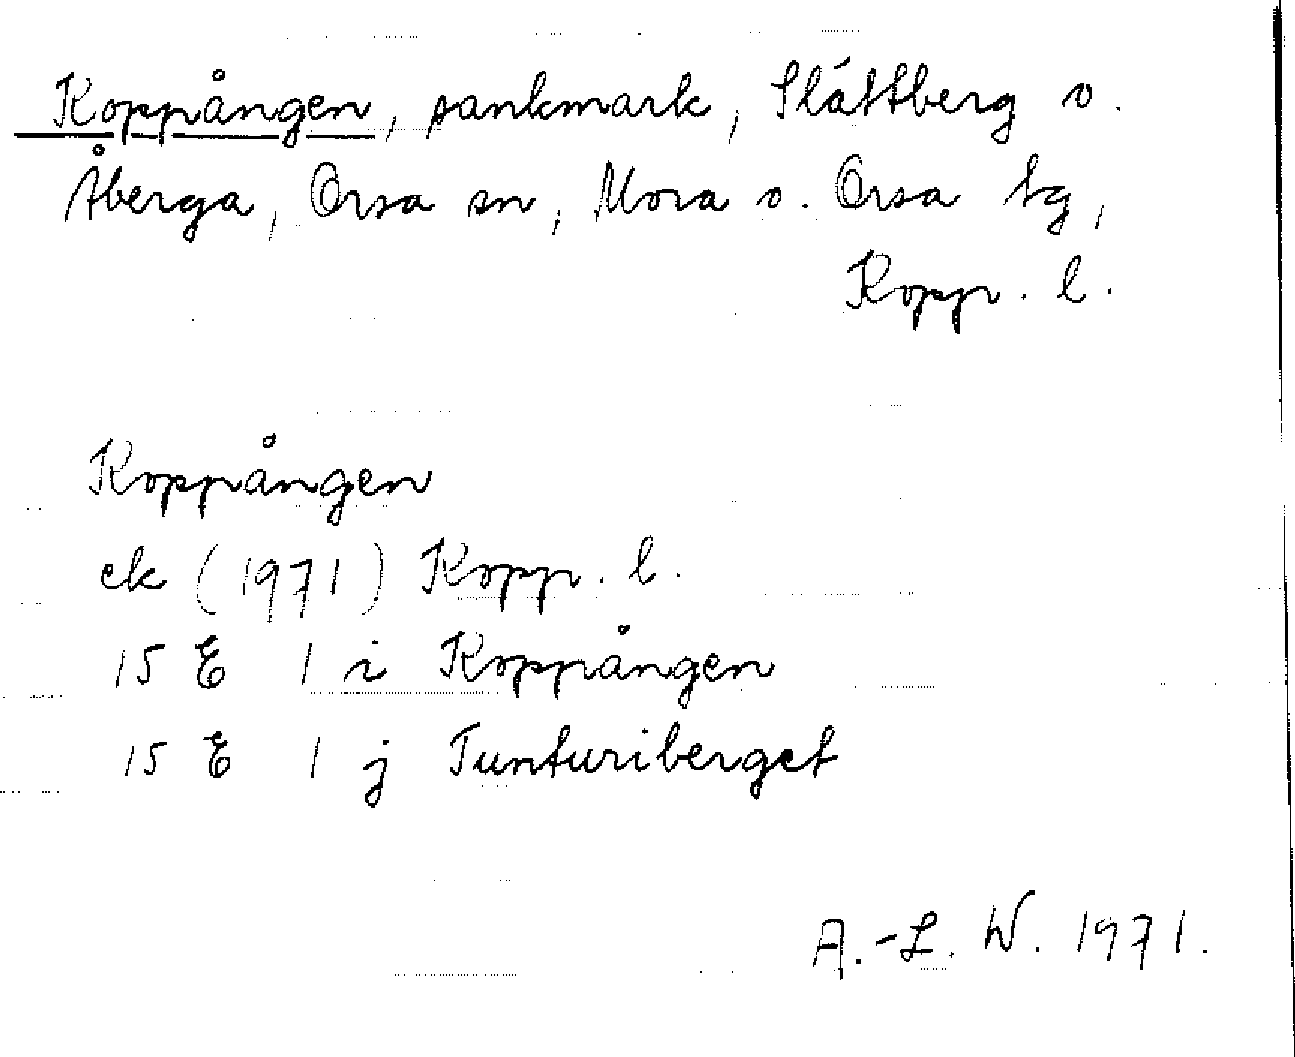 Koppången, sankmark, Slättberg o.
Åberga, Orsa sn, Mora o. Orsa tg,
Kopp. l.
Koppången
ek (1971) Kopp. l.
15 E 1 i Koppången
15 E 1 j Tunturiberget
A.-L. W. 1971.